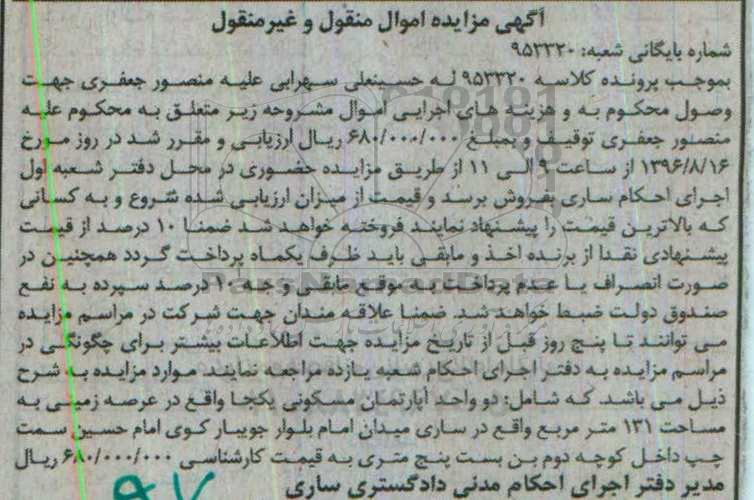 آگهی مزایده اموال منقول و غیرمنقول
شماره بایگانی شعبه: ۹۵۳۳۲۰
بموجب پرونده کلاسه ۹۵۳۳۲۰ له حسینعلی سهرابی علیه منصور جعفری جهت
وصول محکوم به و هزینه های اجرایی اموال مشروحه زیر متعلق به محکوم علیه
منصور جعفری توقیف و بمبلغ ۶۸۰/۰۰۰/۰۰۰ ریال ارزیابی و مقرر شد در روز مورخ
۱۳۹۶/۸/۱۶ از ساعت ۹ الی ۱۱ از طریق مزایده حضوری در محل دفتر شعبه اول
اجرای احکام ساری بفروش برسد و قیمت از میزان ارزیابی شده شروع و به کسانی
که بالاترین قیمت را پیشنهاد نمایند فروخته خواهد شد ضمنا ۱۰ درصد از قیمت
پیشنهادی نقدا از برنده اخذ و مابقی باید ظرف یکماه پرداخت گردد همچنین در
صورت انصراف یا عدم پرداخت به موقع مابقی وجه ۱۰ درصد سپرده به نفع
صندوق دولت ضبط خواهد شد. ضمنا علاقه مندان جهت شرکت در مراسم مزایده
می توانند تا پنج روز قبل از تاریخ مزایده جهت اطلاعات بیشتر برای چگونگی در
مراسم مزایده به دفتر اجرای احکام شعبه یازده مراجعه نمایند. موارد مزایده به شرح
ذیل می باشد که شامل: دو واحد آپارتمان مسکونی یکجا واقع در عرصه زمینی به
مساحت ۱۳۱ متر مربع واقع در ساری میدان امام بلوار جویبار کوی امام حسین سمت
چپ داخل کوچه دوم بن بست پنج متری به قیمت کارشناسی ۶۸۰/۰۰۰/۰۰۰ ریال
مدیر دفتر اجرای احکام مدنی دادگستری ساری